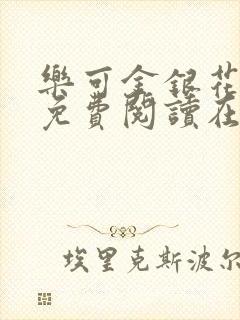 樂可金銀花
免費閱讀在
埃里克斯波尔